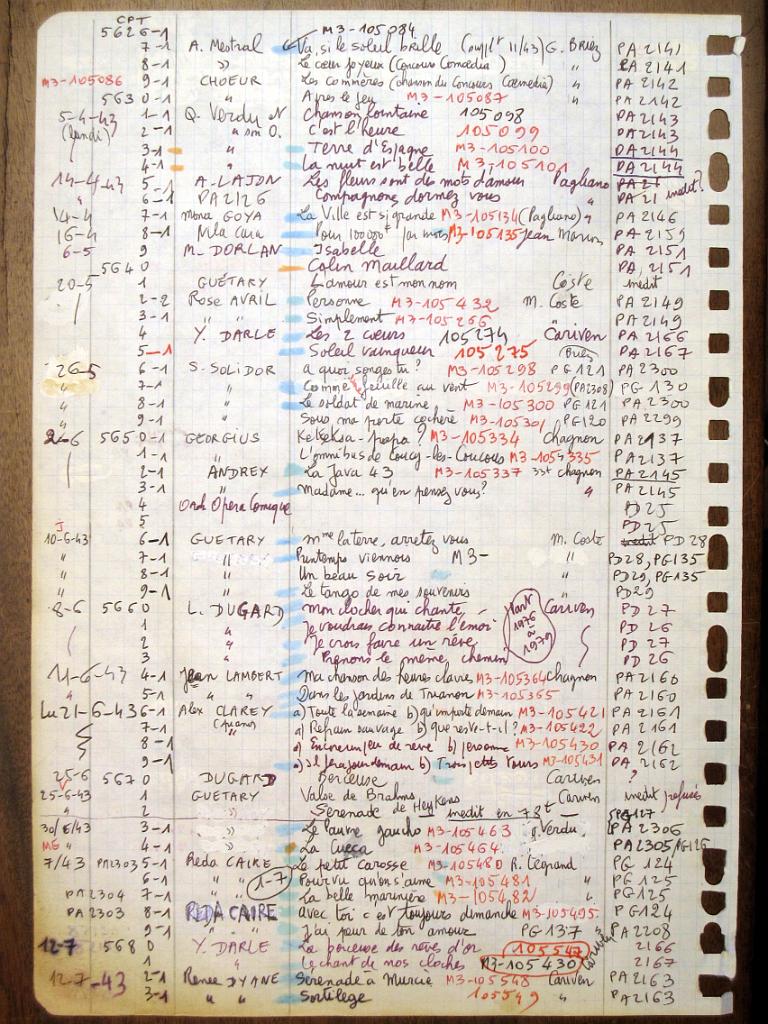 CPT
5626-1 M3-105084
7-1 A. Mestral Va, si le soleil brille G. Briez PA 2141
8-1 " Le cœur joyeux (Concours Comœdia) " PA 2141
M3-105086 9-1 CHOEUR Les commères (chanson du Concours Comœdia) " PA 2142
5630-1 " Après le jeu M3-105087 " PA 2142
5-4-43 1-1 Q. Verdu Chanson lointaine 105098 PA 2143
(lundi) 2-1 " son O. C'est l'heure 105099 PA 2143
3-1 " Terre d'Espagne M3-105100 PA 2144
4-1 " La nuit est belle M3-105101 PA 2144
14-4-43 5-1 A. LAJON Les fleurs sont des mots d'amour Pagliano PA 21
6-1 PA 2126 Compagnons dormez vous " PA 21 inédit?
14-4 7-1 Mona GOYA La Ville est si grande M3-105134 (Pagliano) " PA 2146
16-4 8-1 Mila Cara Pour 100000 par mois M3-105135 Jean PA 2159
6-5 9 M. DORLAN Isabelle PA 2151
5640 Colin Maillard PA 2151
20-5 1 GUÉTARY L'amour est mon nom Coste inédit
2-2 Rose AVRIL Personne M3-105432 M. Coste PA 2149
3-1 " " Simplement M3-105266 PA 2149
4 Y. DARLE Les 2 cœurs 105274 Cariven PA 2166
5-1 Soleil vainqueur 105275 (Briez) PA 2167
26-5 6-1 S. SOLIDOR a quoi songes tu? M3-105298 PG 121 PA 2300
" 7-1 " Comme feuille au vent M3-105299 (PA 2308) PG 130
" 8-1 " Le soldat de marine M3-105300 PG 121 PA 2300
" 9-1 " Sous ma porte cochère M3-105301 PG 120 PA 2299
2-6 5650-1 GEORGIUS Kekseksa-propa? M3-105334 Chagnon PA 2137
1-1 " L'omnibus de Coucy-les-Coucous M3-105335 PA 2137
2-1 ANDREX La Java 43 M3-105337 Chagnon PA 2145
3-1 " Madame... qu'en pensez vous? " PA 2145
4 Orch Opéra Comique PD 25
5 PD 25
10-6-43 6-1 GUETARY Mme la terre, arretez vous M. Coste inédit PD 28
" 7-1 " Printemps viennois M3- " PD 28, PG 135
" 8-1 " Un beau soir " PD 29, PG 135
" 9-1 " Le tango de mes souvenirs " PD 29
8-6 5660 L. DUGARD Mon clocher qui chante Cariven PD 27
1 " Je voudrais connaitre l'émoi PD 26
2 " Je crois faire un rêve PD 27
3 " Prenons le même chemin PD 26
1976 à 1979
11-6-43 4-1 Jean LAMBERT Ma chanson des heures claires M3-105364 Chagnon PA 2160
" 5-1 " Dans les jardins de Trianon M3-105365 PA 2160
Lu 21-6-43 6-1 Alex CLAREY a) Toute la semaine b) qu'importe demain M3-105421 PA 2161
7-1 (piano) " a) Refrain sauvage b) que reste-t-il? M3-105422 PA 2161
8-1 a) Encore un jeu de rêve b) personne M3-105430 PA 2162
9-1 a) Il fera jour demain b) Trois petits tours M3-105431 PA 2162
25-6 5670 DUGARD Berceuse Cariven ?
25-6-43 1 GUETARY Valse de Brahms Cariven inédit refusés
" 2 " Sérénade de Heykens inédit en 78t PG 127
30/6/43 3-1 " Le pauvre gaucho M3-105463 Q. Verdu PA 2306
Me 4-1 " La Cueca M3-105464 " PA 2305/PG 126
7/43 PA 2303 5-1 Reda CAIRE Le petit carosse M3-105480 R. Legrand PG 124
6-1 " " Pourvu qu'on s'aime M3-105481 PG 125
PA 2304 7-1 1-7 La belle marinière M3-105482 " PG 125
PA 2303 8-1 REDA CAIRE avec toi c'est toujours dimanche M3-105495 PG 124
9-1 " " J'ai peur de ton amour PG 137 PA 2208
12-7 5680 Y. DARLE La berceuse des rêves d'or 105547 2166
1 " Le chant de nos cloches M3-105430 2167
12-7-43 2-1 Renée DYANE Sérénade à Murcie M3-105548 Cariven PA 2163
3-1 " " Sortilège 105549 " PA 2163